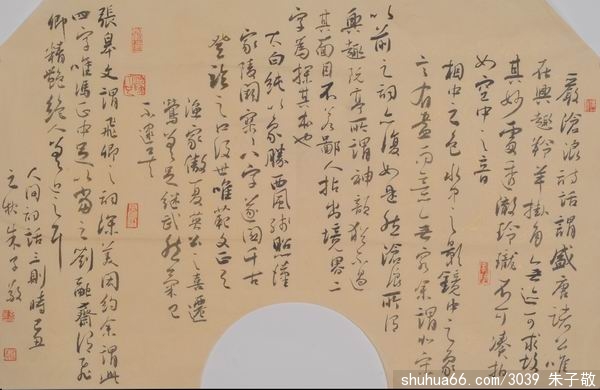 嚴滄浪詩話謂盛唐諸公唯
在興趣羚羊掛角無迹可求故
其妙處透徹玲瓏不可湊拍
如空中之音
相中之色水中之影鏡中之象
言有盡而意無窮余謂北宋
以前之詞亦復如是然滄浪所謂
興趣阮亭所謂神韻猶不過道
其面目不若鄙人拈出境界二
字為探其本也
太白純以氣勝西風殘照漢
家陵闕寥寥八字遂關千古
登臨之口後世唯范文正之
漁家傲夏英公之喜遷
鶯差足繼武然氣已
不逮矣
張皋文謂飛卿之詞深美閎約余謂此
四字唯馮正中足以當之劉融齋謂飛
卿精艷絕人差近之耳
人間詞話三則時
之秋朱子敬
shuhua66.com/3039 朱子敬